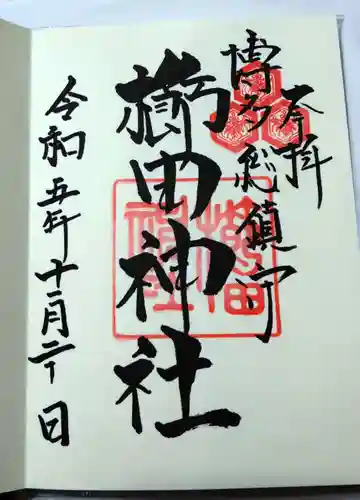 奉拝
博多総鎮守
櫛田神社
令和五年十一月二十日
櫛田神社